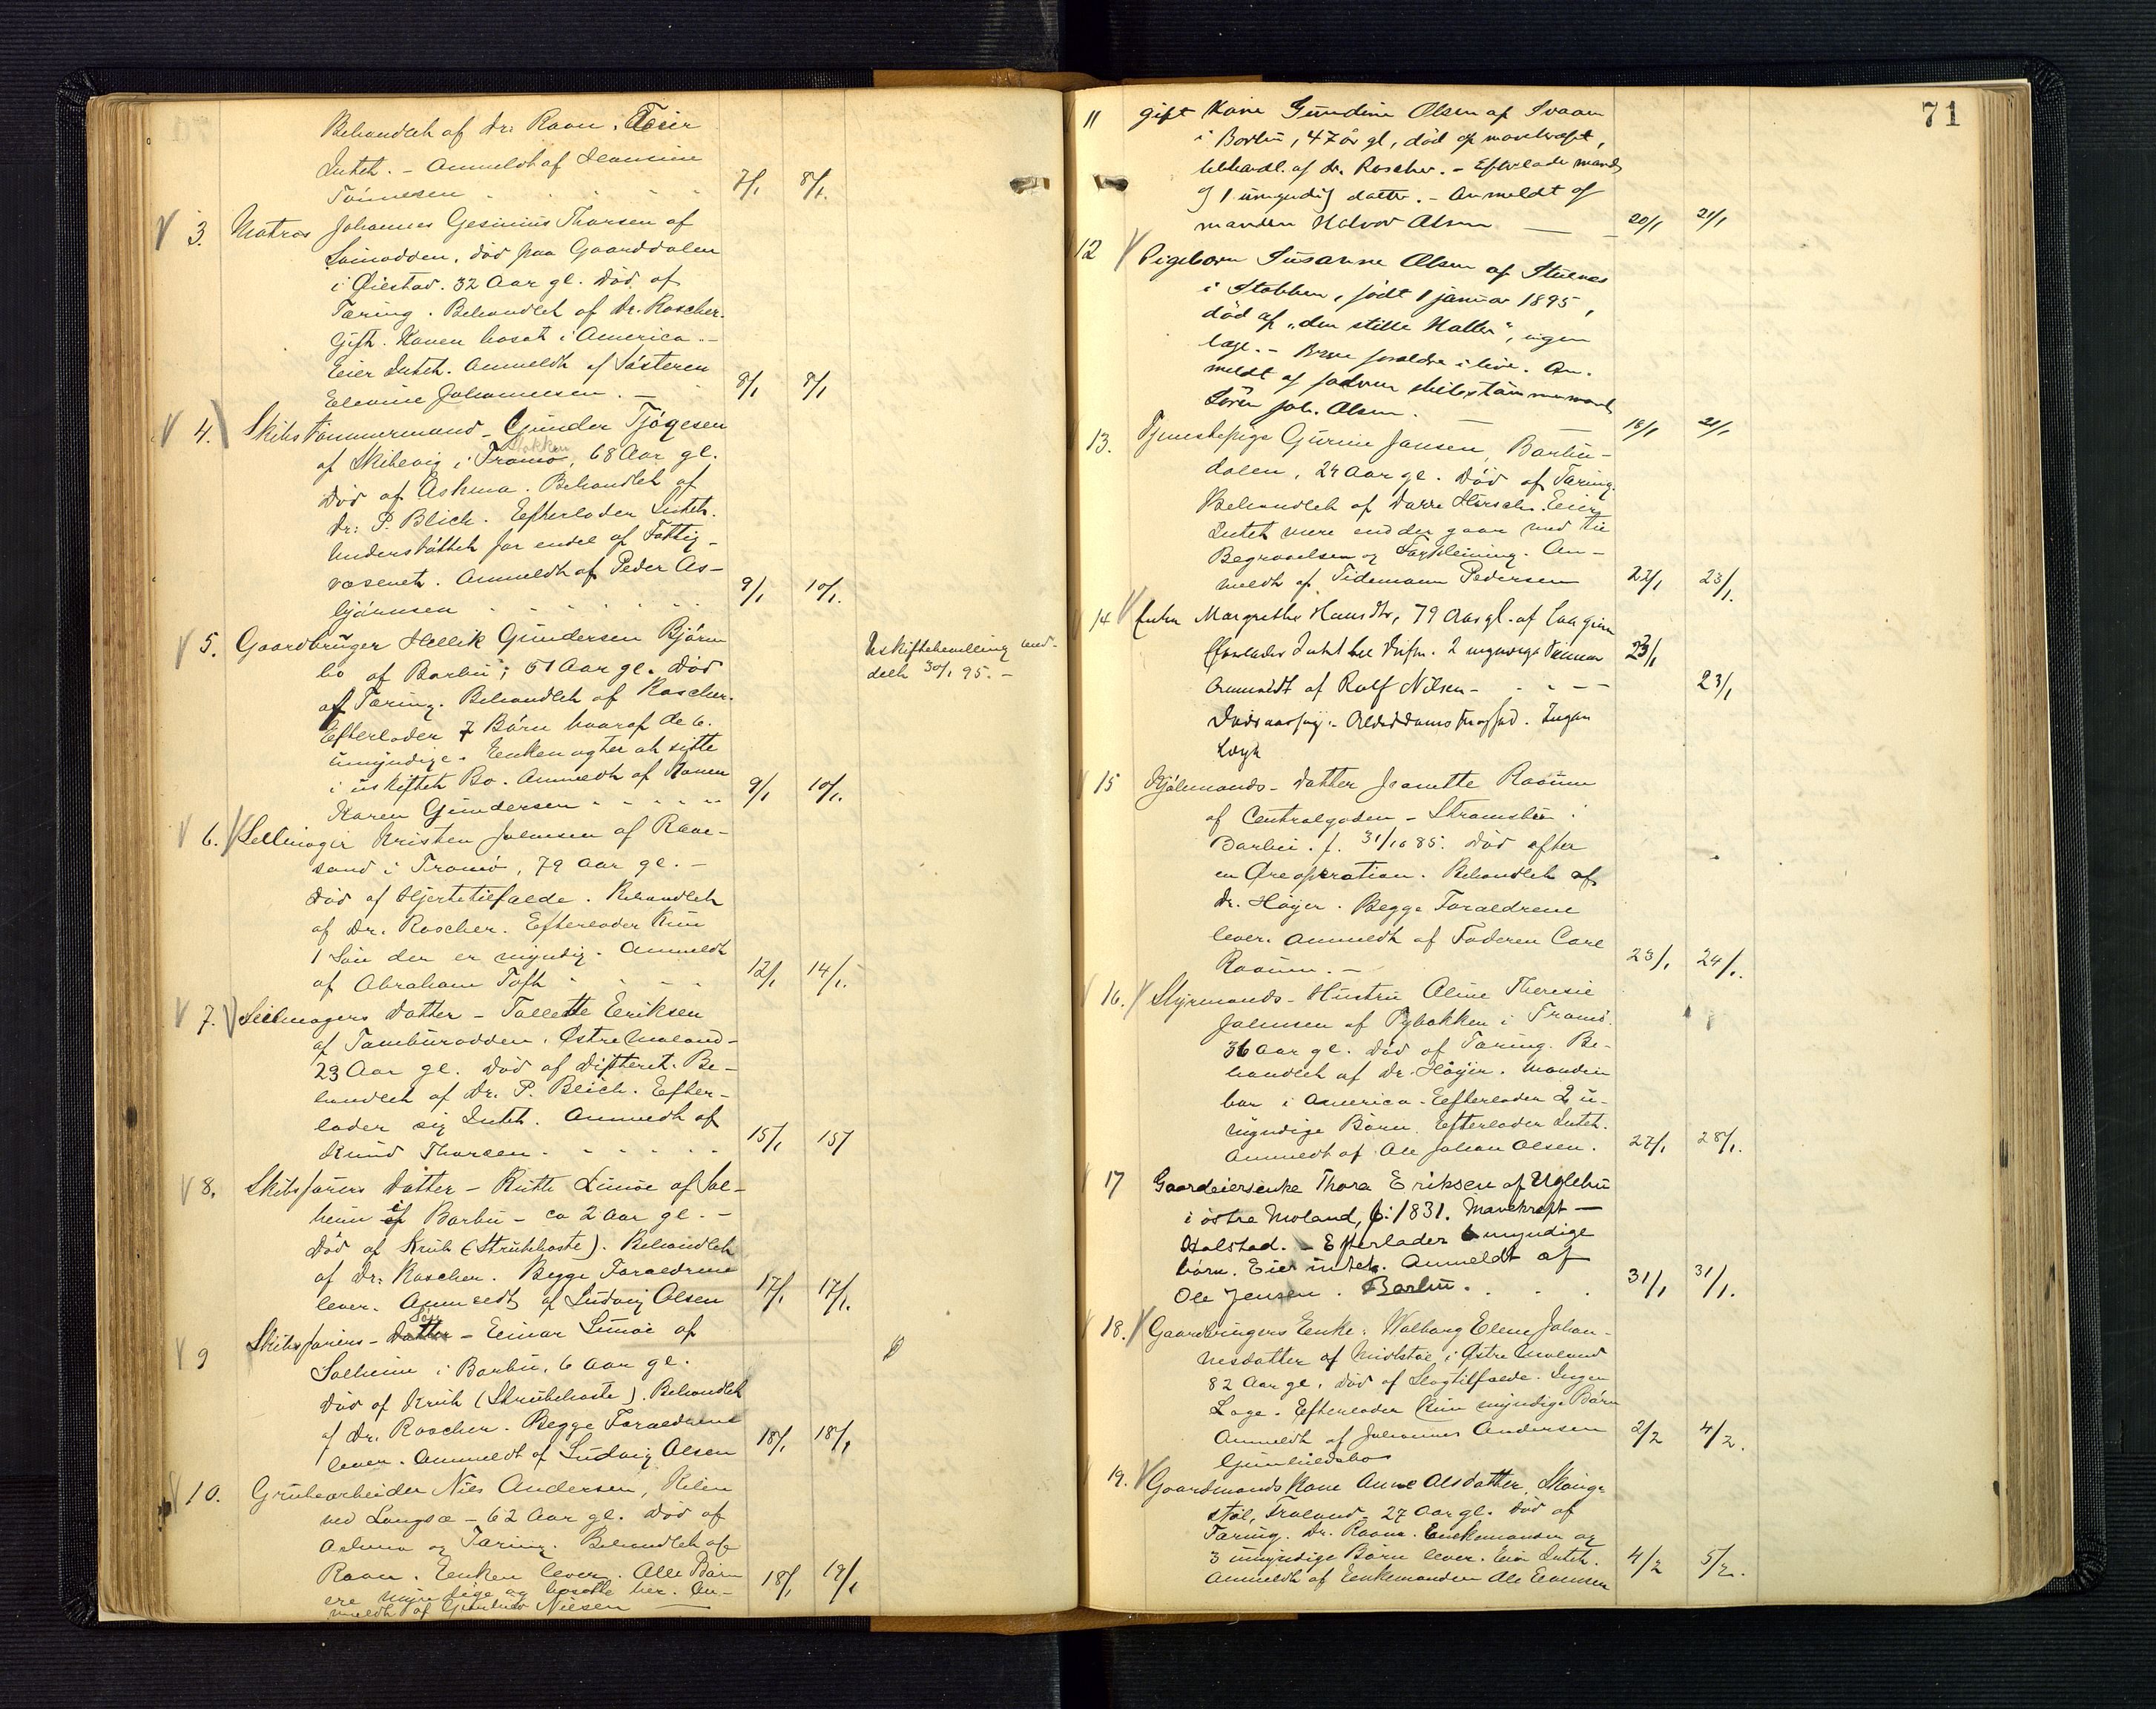 Behandlet af Dr. Raan. Eeier
Intet. – Anmeldt af
Tönnesen 7/1 8/1.
3. Matros Johannes Gesinius Thorsen af
död paa Gaarddalen
i Öiestad. 32 Aar gl. Död af
Tæring. Behandlet af Dr. Roscher.
Gift. Konen bosat i America. –
Eeier Intet. Anmeldt af Söstern
Johannesen. – 8/1 8/1
4. Skibstömmermand – Gunder Tjögesen
Stokken
af Skilevig i Tromö, 68 Aar gl.
Död af Astma. Behandlet af
Dr. P. Blich. Efterlader Intet.
Understöttet for endel af Fattig-
væsenet. Anmeldt af Peder As-
björnsen 9/1 10/1.
5. Gaardbruger Hellik Gundersen Björn-
bo af Barbu, 51 Aar gl. Död
af Tæring. Behandlet af Roscher.
Efterlader 7 Börn hvoraf de 6.
umyndige. Enken agter at sitte
i uskiftet Bo. Anmeldt af Konen
Karen Gundersen 9/1 10/1.
Uskiftebevilling med-
delt 30/1 95. –
6. Seilmager Kristen Johnsen af Rave-
sand i Tromö, 79 Aar gl. –
Död af Hjertetilfælde. Behandlet
af Dr. Roscher. Efterlader kun
1 Sön der er myndig. Anmeldt
af Abraham Toft 12/1 14/1.
7. Seilmagers Datter – Tallette Eriksen
af Tamburodden. Östre Moland –
23 Aar gl. Död af Difterit. Be-
handlet af Dr. P. Blich. Efter-
lader sig Intet. Anmeldt af
Knud Thorsen. 15/1 15/
8. Skibsförers Datter – Ruth Limöe af Sol-
heim i Barbu – ca 2 Aar gl. –
Död af Krub (Strubehoste). Behandlet
af Dr. Roscher. Begge Foraeldrene
lever. Anmeldt af Ludvig Olsen 17/1 17/1.
Sön
9 Skibsförers – Datter – Einar Limöe af
Solheim i Barbu, 6 Aar gl.
Död af Krub (Strubehoste). Behandlet
af Dr. Roscher. Begge Foraeldrene
lever. Anmeldt af Ludvig Olsen 18/1 18/1
10. Grubearbeider Nils Andersen, Kilen
ved Langsæ – 62 Aar gl. Död af
Astma og Tæring. Behandlet af
Raan. Enken lever. Alle Börn
ere myndige og bosatte her. An-
meldt af Nilsen 18/1 19/1
71
11 gift Kone Gundine Olsen af Svaan
i Barbu, 47 år gl, död af mavekræft,
behandl. af dr. Roscher. – Efterlader mand
og 1 umyndig datter. – Anmeldt af
manden Halvor Olsen 20/1 21/1
12 Pigebarn Susanne Olsen af Stuenes
i Stokken, født 1 januar 1895,
död af "den stille Katter", ingen
læge. – forældre i live. An-
meldt af faderen skibstömmermand
Sören Joh. Olsen. 18/1 21/1
13. Tjenestepige Gurine Jansen, Barbu-
dalen, 24 Aar gl. Död af Tæring.
Behandlet af Hirsch. Eeier
Intet mere end der gaar med til
Begravelsen og. An-
meldt af Tidemann Pedersen 22/1 23/1.
14 Enke Margrethe Hansdtr, 79 Aar gl. af
Efterlader Intet. 2 myndige 23/1
Anmeldt af Rolf Nilsen – 23/1
Dødsaarsag: Alderdoms. Ingen
Læge
15 Datter Jeanette Raaum
af Centralgaden – Strömsbu i
Barbu. f. 31/10 85. Död efter
en Öreoperation. Behandlet af
Dr. Höyer. Begge Foraeldrene
lever. Anmeldt af Faderen Carl
Raaum. – 23/1 24/1.
16. Styrmands – Hustru Aline Theresie
Johnsen af Pybakken i Tromö.
36 Aar gl. Död af Tæring. Be-
handlet af Dr. Höyer. Manden
bor i America. Efterlader 2 u-
myndige Börn. Efterlader Intet.
Anmeldt af Ole Johan Olsen. 27/1 28/1.
17 Gaardeiersenke Thora Eriksen af Uglebu
i östre Moland, f: 1831. Mavekræft –
Halstad. – Efterlader 6 myndige
börn. Eier intet. Anmeldt af
Ole Jensen. Barbu. 31/1 31/1.
18. Gaardbrugers Enke. Walborg Elene Johan-
nesdatter af Midstöl i Östre Moland
82 Aar gl. Död af Slagtilfælde. Ingen
Læge. Efterlader kun myndige Börn
Anmeldt af Johannes Andersen
Gunhildsbo 2/2 4/2.
19. Gaardmands Kone Anne Olsdatter, Skings-
stöl, Fröland – 27 Aar gl. Död af
Tæring. Dr. Raan. Enkemanden og
3 umyndige Börn lever. Eeier Intet.
Anmeldt af Enkemanden Ole Evensen 4/2 5/2.